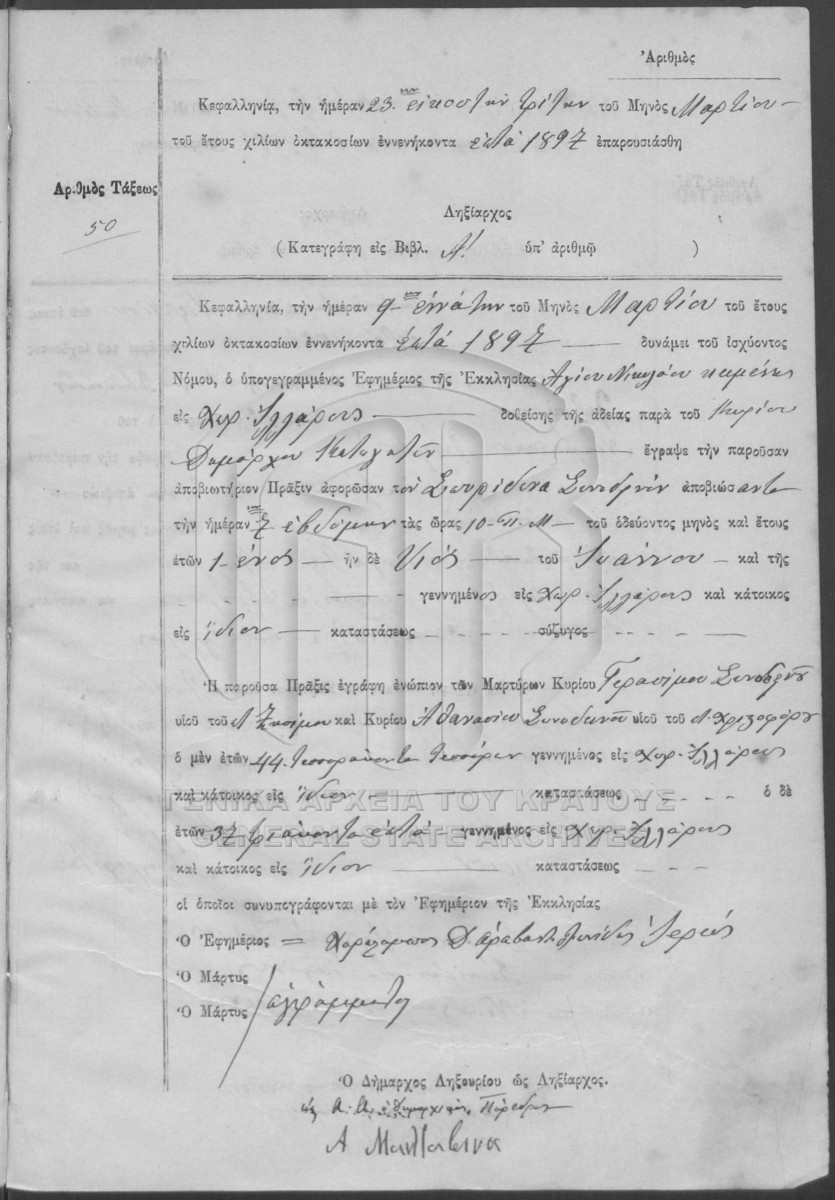 Ἀριθμὸς
Κεφαλληνίᾳ, τὴν ἡμέραν 23. εἰκοστὴν τρίτην τοῦ Μηνὸς Μαρτίου
τοῦ ἔτους χιλίων ὀκτακοσίων ἐννενήκοντα ἑπτά 1897 ἐπαρουσιάσθη
Ἀριθμὸς Τάξεως
50
Ληξίαρχος
( Κατεγράφη εἰς Βιβλ. Α! ὑπ' ἀριθμῷ )
Κεφαλληνίᾳ, τὴν ἡμέραν 9 ἐννάτην τοῦ Μηνὸς Μαρτίου τοῦ ἔτους
χιλίων ὀκτακοσίων ἐννενήκοντα ἑπτά 1897 δυνάμει τοῦ ἰσχύοντος
Νόμου, ὁ ὑπογεγραμμένος Ἐφημέριος τῆς Ἐκκλησίας Ἁγίου Νικολάου
εἰς Χωρ. Ἰλλάρους δοθείσης τῆς ἀδείας παρὰ τοῦ Κυρίου
Δημάρχου ἔγραψε τὴν παροῦσαν
ἀποβιωτήριον Πρᾶξιν ἀφορῶσαν τον Σπυρίδωνα ἀποβιώσαντα
τὴν ἡμέραν 7 ἑβδόμην τὰς ὥρας 10 π. Μ τοῦ ὁδεύοντος μηνὸς καὶ ἔτους
ἐτῶν 1 ἑνός ἦν δὲ Υἱός τοῦ Ἰωάννου καὶ τῆς
γεννημένος εἰς Χωρ. Ἰλλάρους καὶ κάτοικος
εἰς ἴδιον καταστάσεως σύζυγος
Ἡ παροῦσα Πρᾶξις ἐγράφη ἐνώπιον τῶν Μαρτύρων Κυρίου Γερασίμου Συνοδινοῦ
υἱοῦ τοῦ Ζησίμου καὶ Κυρίου Ἀθανασίου Συνοδινοῦ υἱοῦ τοῦ
ὁ μὲν ἐτῶν 44 τεσσαράκοντα τεσσάρων γεννημένος εἰς Χωρ. Ἰλλάρους
καὶ κάτοικος εἰς ἴδιον καταστάσεως ὁ δὲ
ΓΕΝΙΚΑ ΑΡΧΕΙΑ ΤΟΥ ΚΡΑΤΟΥΣ
ἐτῶν 37 τριάκοντα ἑπτά γεννημένος εἰς Χωρ. Ἰλλάρους
GENERAL STATE ARCHIVES
καὶ κάτοικος εἰς ἴδιον καταστάσεως
οἱ ὁποῖοι συνυπογράφονται μὲ τὸν Ἐφημέριον τῆς Ἐκκλησίας
Ὁ Ἐφημέριος = Χαράλαμπος Ἱερεύς
Ὁ Μάρτυς
Ὁ Μάρτυς ἀγράμματοι
Ὁ Δήμαρχος Ληξουρίου ὡς Ληξίαρχος.
Πάρεδρος